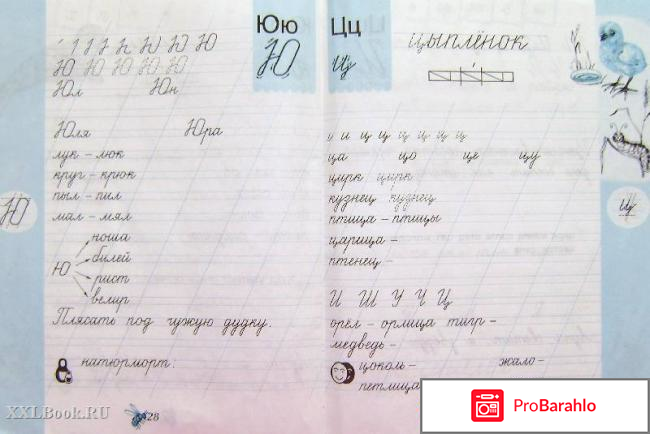 Юю
Ю
Ю Ю Ю
Ю Ю Ю Ю Ю
Юл Юн
Юля Юра
лук – люк
круг – крюк
пыл – пил
мал – мял
Ю
ноша
билей
рист
велир
Плясать под чужую дудку.
натюрморт:
Ю
28
XXLBook.RU
Цц
Ц
цыплёнок
и и ц ц ц ц ц ц
ца цо це цу
цирк цирк
кузнец кузнец
птица – птицы
царица –
птенец –
И Ш У Ч Ц
орёл – орлица тигр –
медведь –
цоколь – жало –
петлица
Ц
ProBarahlo